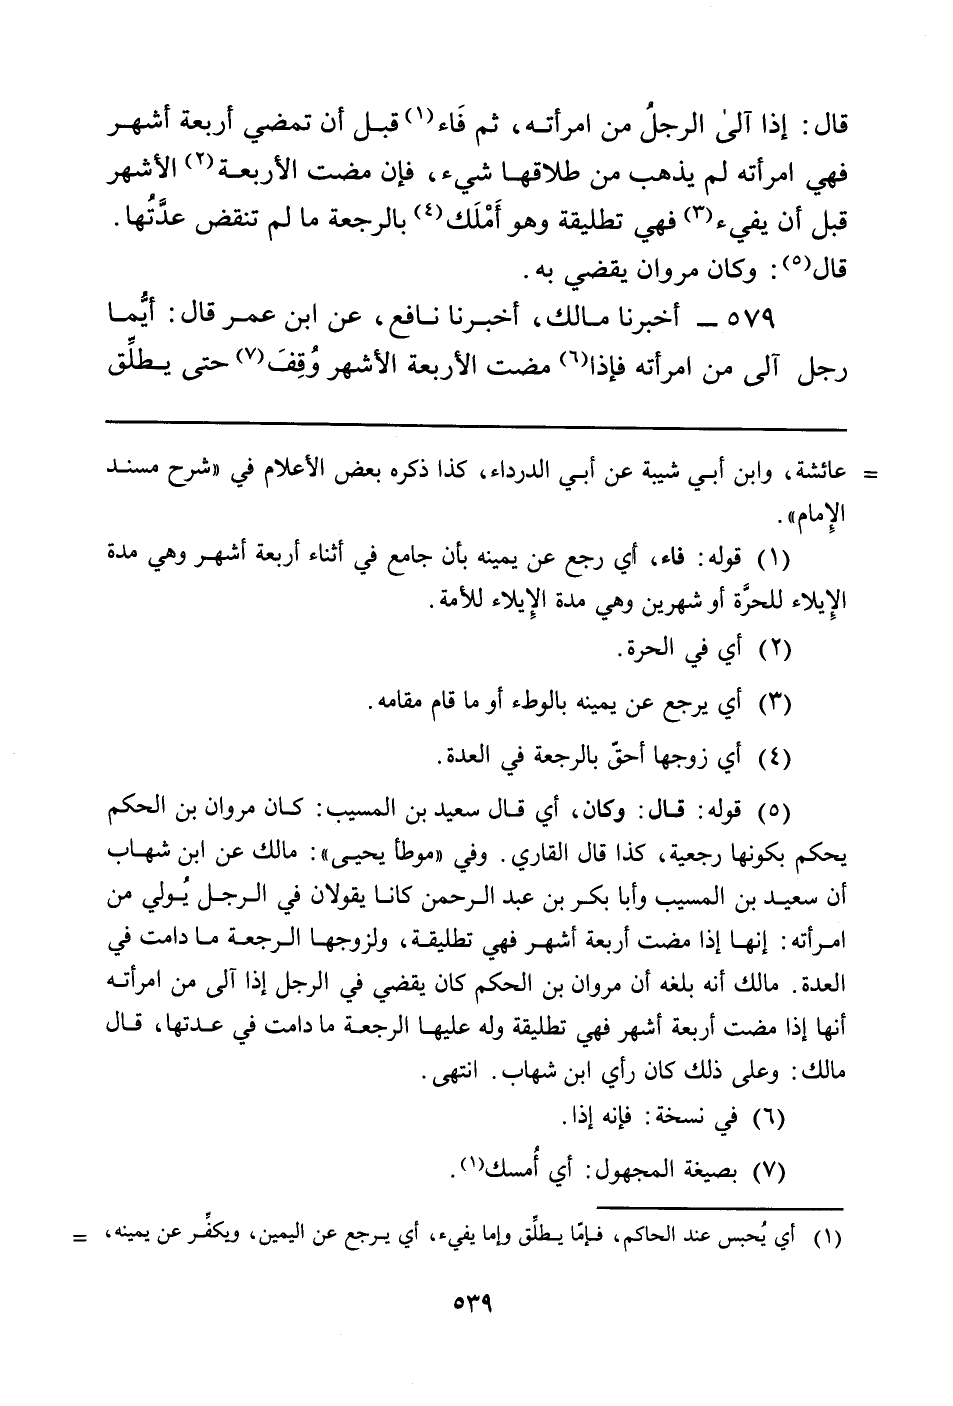 قال: إذا آلىٰ الرجلُ من امرأتـه، ثم فَاء(١) قبـل أن تمضي أربعة أشهـر
فهي امرأته لم يذهب من طلاقهـا شيء، فإن مضت الأربعـة(٢) الأشهر
قبل أن يفيء(٣) فهي تطليقة وهو أَمْلَك(٤) بالرجعة ما لم تنقض عدَّتُها.
قال(٥): وكان مروان يقضي به.
٥٧٩ ــ أخبرنا مـالك، أخبـرنا نـافع، عن ابن عمـر قال: أيُّمـا
رجل آلى من امرأته فإذا(٦) مضت الأربعة الأشهر وُقِفَ(٧) حتى يـطلِّق
= عائشة، وابن أبـي شيبة عن أبـي الدرداء، كذا ذكره بعض الأعلام في «شرح مسنـد
الإِمام».
(١) قوله: فاء، أي رجع عن يمينه بأن جامع في أثناء أربعة أشهـر وهي مدة
الإِيلاء للحرَّة أو شهرين وهي مدة الإِيلاء للأمة.
(٢) أي في الحرة.
(٣) أي يرجع عن يمينه بالوطء أو ما قام مقامه.
(٤) أي زوجها أحقّ بالرجعة في العدة.
(٥) قوله: قـال: وكان، أي قـال سعيد بن المسيب: كـان مروان بن الحكم
يحكم بكونها رجعية، كذا قال القاري. وفي «موطأ يحيـى»: مالك عن ابن شهـاب
أن سعيـد بن المسيب وأبا بكـر بن عبد الـرحمن كانـا يقولان في الـرجـل يُولي من
امـرأته: إنهـا إذا مضت أربعة أشهـر فهي تطليقـة، ولزوجهـا الـرجعة مـا دامت في
العدة. مالك أنه بلغه أن مروان بن الحكم كان يقضي في الرجل إذا آلى من امرأتـه
أنها إذا مضت أربعة أشهر فهي تطليقة وله عليهـا الرجعـة ما دامت في عـدتها، قـال
مالك: وعلى ذلك كان رأي ابن شهاب. انتهى.
(٦) في نسخة: فإنه إذا.
(٧) بصيغة المجهول: أي أُمسك(١).
(١) أي يُحبس عند الحاكم، فـإمّا يـطلِّق وإما يفيء، أي يـرجع عن اليمين، ويكفِّـر عن يمينه، =
٥٣٩